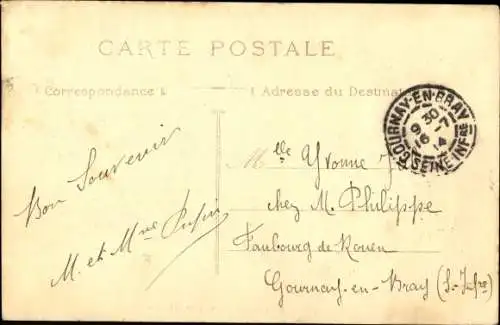 CARTE POSTALE
Correspondance
Adresse du Destinat
GOURNAY-EN-BRAY
9 30
16-7
14
SEINE INFRE
Bon Souvenir
M. et Mme
Mlle Yvonne
chez M. Philippe
Faubourg de Rouen
Gournay-en-Bray (S.-Infre)